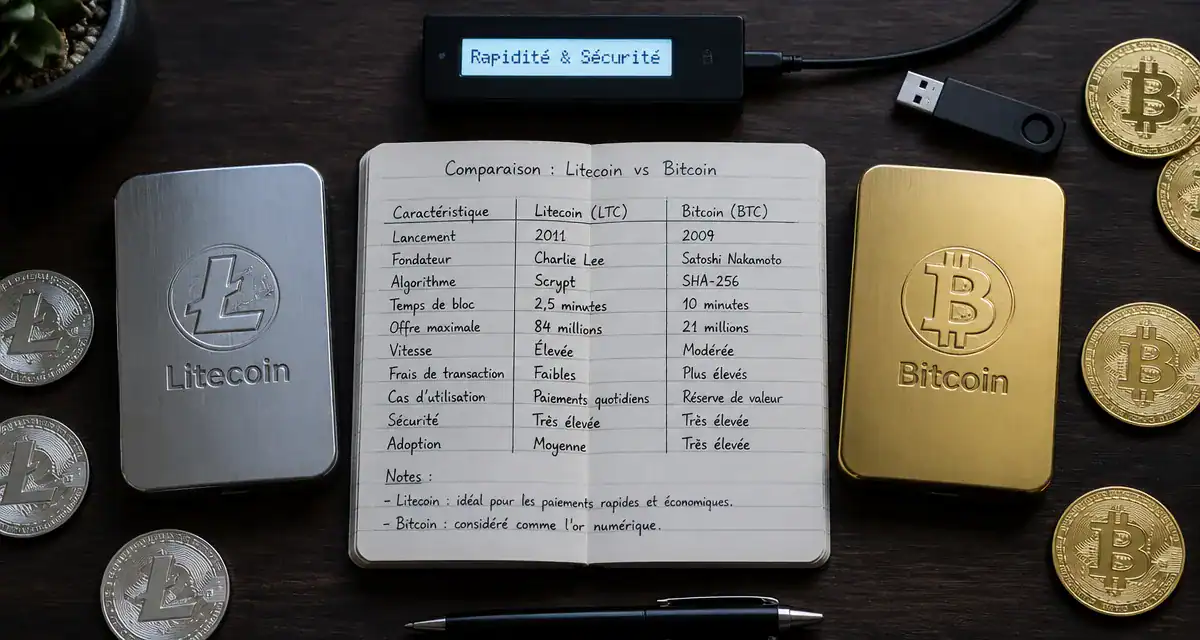 Rapidité & Sécurité
Comparaison : Litecoin vs Bitcoin
Caractéristique Litecoin (LTC) Bitcoin (BTC)
Lancement 2011 2009
Fondateur Charlie Lee Satoshi Nakamoto
Algorithme Scrypt SHA-256
Temps de bloc 2,5 minutes 10 minutes
Offre maximale 84 millions 21 millions
Vitesse Élevée Modérée
Frais de transaction Faibles Plus élevés
Cas d'utilisation Paiements quotidiens Réserve de valeur
Sécurité Très élevée Très élevée
Adoption Moyenne Très élevée
Notes :
- Litecoin : idéal pour les paiements rapides et économiques.
- Bitcoin : considéré comme l'or numérique.
Litecoin
Bitcoin